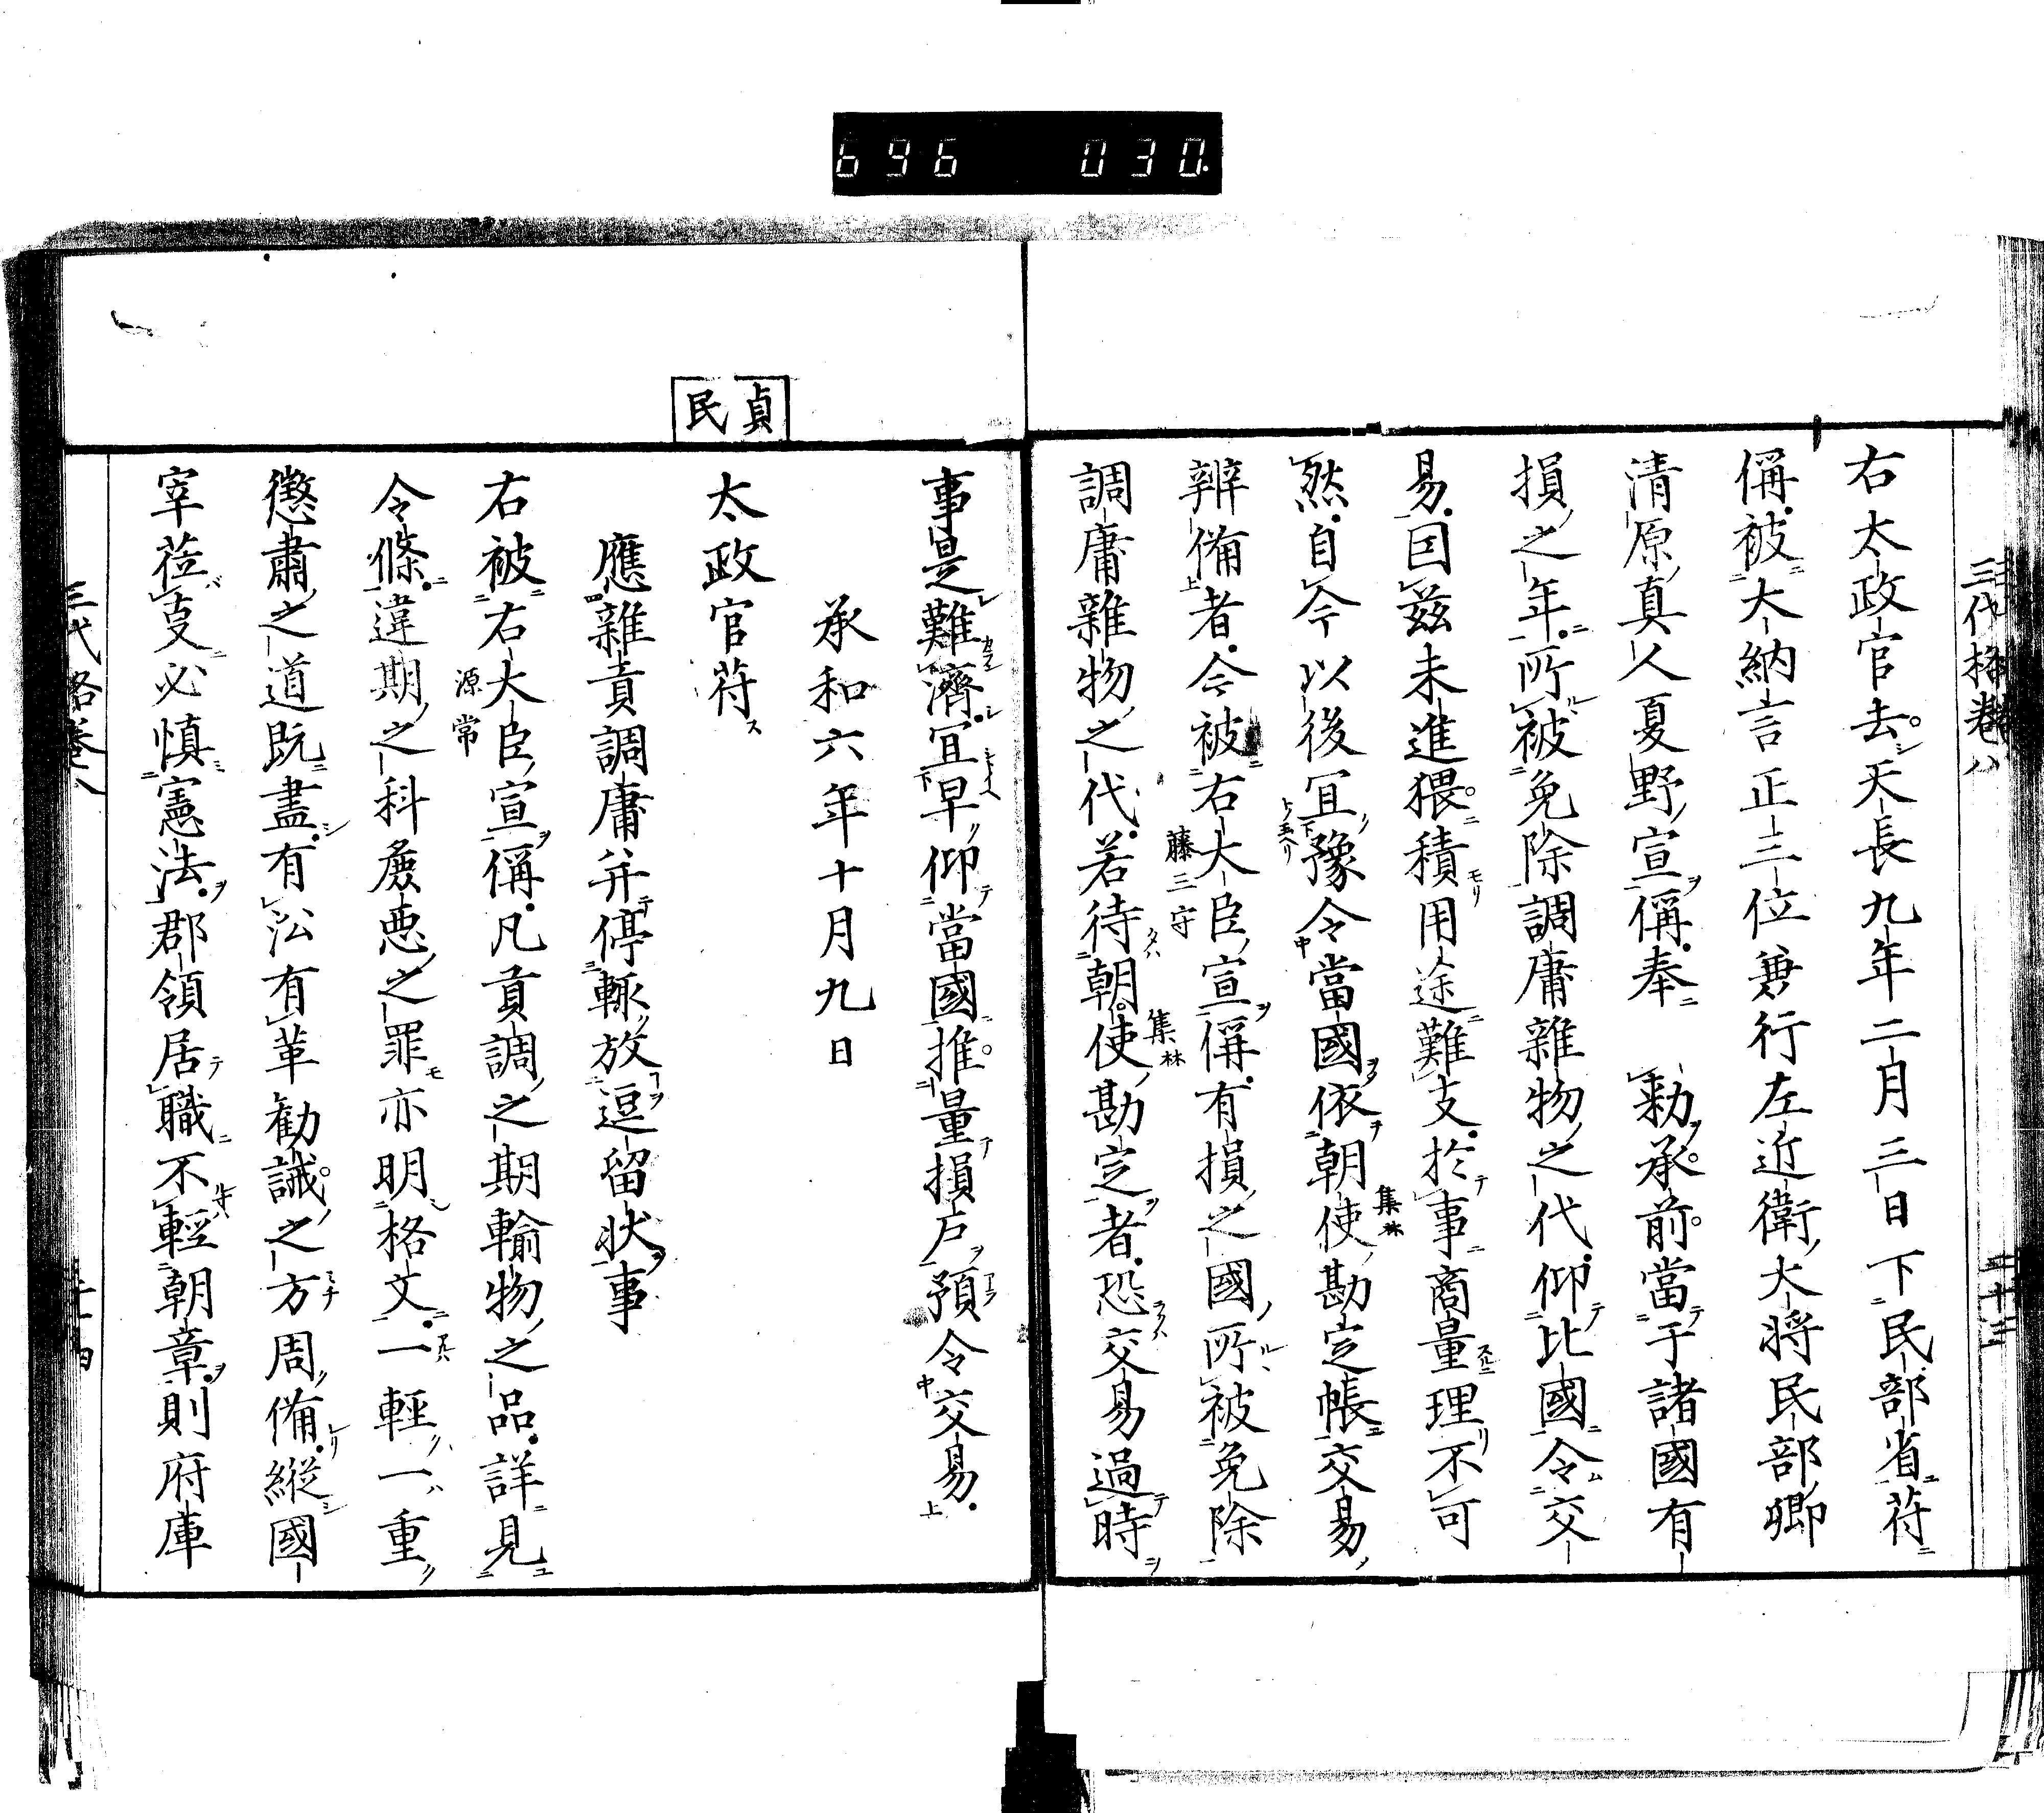 696 030.
三代格卷八 二十三
右太政官去天長九年二月三日下民部省符
偁被大納言正三位兼行左近衛大将民部卿
清原真人夏野宣偁奉 勅承前當于諸國有
損之年所被免除調庸雜物之代仰比國令交
易因茲未進猥積用途難支於事商量理不可
然自今以後宜豫令當國依朝使勘定帳交易
集林
辨備者今被右大臣宣偁有損之國所被免除
藤三守
調庸雜物之代若待朝使勘定者恐交易過時
集林
事是難濟宜早仰當國推量損戸預令交易
承和六年十月九日
貞民
太政官符
應雜責調庸并停輙放逗留状事
右被右大臣宣偁凡貢調之期輸物之品詳見
源常
令條違期之科麁悪之罪亦明格文一輕一重
懲肅之道既盡有沿有革勧誡之方周備縱國
宰莅㕝必慎憲法郡領居職不輕朝章則府庫
三代格卷八